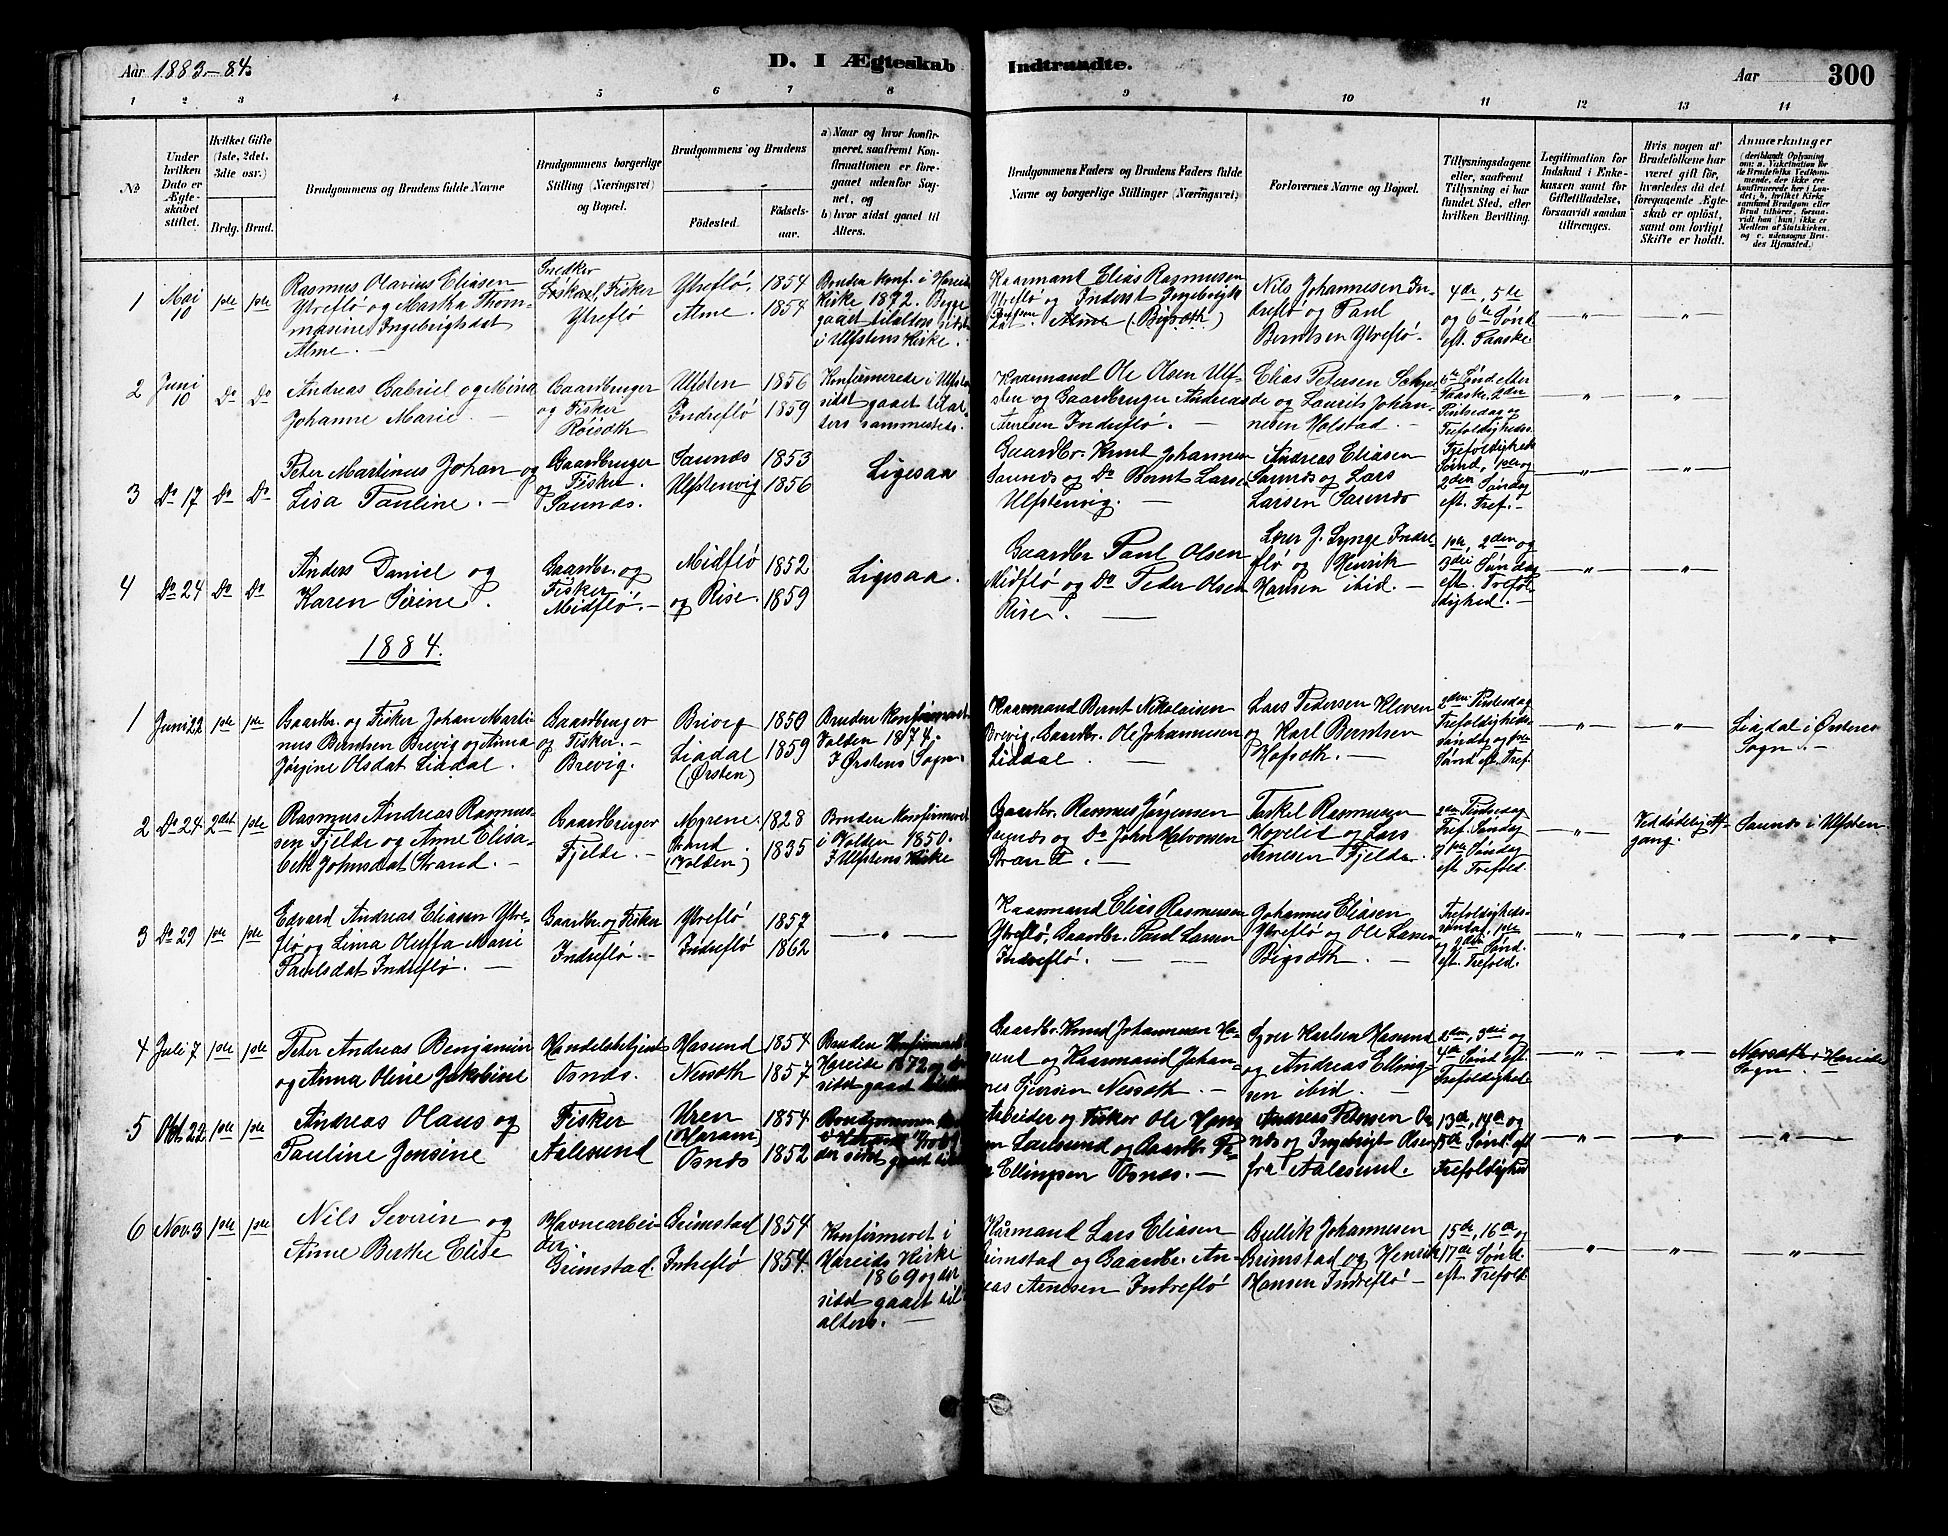 Aar 1883-84. D. I Ægteskab Indtraadte. Aar 300
1 2 3 4 5 6 7 8 9 10 11 12 13 14
No
Under hvilken Dato er Ægteskabet stiftet.
Hvilket Gifte (1ste, 2det, 3die osv.)
Brdg. Brud.
Brudgommens og Brudens fulde Navne
Brudgommens borgerlige Stilling (Næringsvei) og Bopæl.
Brudgommens og Brudens
Födested. Födselsaar.
a) Naar og hvor konfirmeret, saafremt Konfirmationen er foregaaet udenfor Sognet, og
b) hvor sidst gaaet til Alters.
Brudgommens Faders og Brudens Faders fulde Navne og borgerlige Stillinger (Næringsvei)
Forlovernes Navne og Bopæl.
Tillysningsdagene eller, saafremt Tillysning ei har fundet Sted, efter hvilken Bevilling.
Legitimation for Indskud i Enkekassen samt for Giftetilladelse, forsaavidt saadan tiltrænges.
Hvis nogen af Brudefolkene har været gift för, hvorledes da det foregaaende Ægteskab er oplöst, samt om lovligt Skifte er holdt.
Anmærkninger
1 Mai 10 1ste 1ste
Rasmus Olavius Eliasen
Ytreflö og Martha Thom-
masine Ingebrigtsdat
Alme. —
Snedker
Fisker
Ytreflö
Ytreflö. 1854
Alme. 1854
Bruden konf. i Hareids
Kirke 1872. Begge
gaaet tilalters sidst
i Ulfstens Kirke.
Kaarmand Elias Rasmussen
Ytreflö og Inderst Ingebrigt
Alme (Bigsæth)
Nils Johannesen In-
dreflö og Paul
Berntsen Ytreflö.
4de, 5te
og 6te Sönd.
eft. Paaske
2 Juni 10 Do Do
Andreas Gabriel og Mina
Johanne Marie. —
Gaardbruger
og Fisker
Röisæth
Ulfsten 1856
Indreflö 1859
Konfirmerede i Ulfsten
sidst gaaet tilal-
ters sammesteds.
Kaarmand Ole Olsen Ulf-
sten og Gaardbruger Andreas
Arnesen Indreflö. —
Elias Petersen
og Laurits Johan-
nesen Holstad. —
6te Sönd efter
Paaske, 2den
Pintsedag og
Trefoldigheds.
3 Do 17 Do Do
Peter Martinus Johan og
Lisa Pauline. —
Gaardbruger
og Fisker.
Saunæs.
Saunæs 1853
Ulfstenvig 1856
Ligesaa
Gaardbr. Knut Johannesen
Saunæs og Do Bernt Larsen
Ulfstenvig. —
Andreas Eliasen
Saunæs og Lars
Larsen Saunæs
Trefoldigheds
Sönd, 1ste og
2den Söndag
eft. Tref. —
4 Do 24 Do Do
Anders Daniel og
Karen Sirine.
Gaardbr. og
Fisker
Midflö. —
Midflö 1852
og Rise. 1859
Ligesaa.
Gaardbr Paul Olsen
Midflö og Do Peder Olsen
Rise. —
J. Synge Indre-
flö og Henrik
Hansen ibid. —
1ste, 2den og
3die Söndag
eft. Trefol-
dighed. —
1884.
1 Juni 22 1ste 1ste
Gaardbr. og Fisker Johan Marti-
nus Berntsen Brevig og Anna
Jörgine Olsdat Liadal.
Gaardbruger
og Fisker. —
Brevig.
Brevig 1850
Liadal 1859
(Örsten)
Bruden Konfirmeret
Volden 1874.
I Ørstens Sogn
Kaarmand Bernt Nikolaisen
Brevig, Gaardbr. Ole Johannesen
Liadal. —
Lars Pedersen Kleven
og Karl Berntsen
Hofsæth. —
2den Pintsedag
Trefoldigheds-
söndag og 1ste
Sönd eft. Tref.
Liadal i Örstens
Sogn. —
2 Do 24 2det 1ste
Rasmus Andreas Rasmus-
sen Fjelde og Anne Elisa-
beth Johnsdat Strand. —
Gaardbruger
Fjelde. —
Myrene 1828
Strand. 1835
(Volden)
Bruden Konfirmeret
i Volden 1850.
I Ulfstens Kirke
Gaardbr. Rasmus Jörgensen
Saunæs og Do John Halvorsen
Strand. —
Terkel Rasmussen
Hovelid og Lars
Arnesen Fjelde.
2den Pintsedag
Tref. Söndag
og 1ste Söndag
eft Trefold.
Ved dödelig Af-
gang.
Saunæs i Ulfsten
3 Do 29 1ste 1ste
Edvard Andreas Eliasen Ytre-
flö og Lina Oluffa Marie
Paulsdat Indreflö. —
Gaardbr. og Fisker
Indreflö. —
Ytreflö 1857
Indreflö 1862
Kaarmand Elias Rasmussen
Ytreflö, Gaardbr. Paul Larsen
Indreflö. — —
Johannes Eliasen
Ytreflö og Ole Larsen
Bigsæth. —
Trefoldigheds-
söndag, 1ste
og 2den Sönd.
eft. Trefold.
4 Juli 7 1ste 1ste
Peter Andreas Benjamin
og Anna Oline Jakobine
Handelsbetjent
Osnæs.
Hasund 1854
Nessæth 1857
Bruden Konfirmeret
Hareide 1872 og der
sidst gaaet
Gaardbr. Knud Johannesen Ha-
sund og Kaarmand Johan-
nes Nessæth. —
Syver Karlsen Hasund
og Andreas Elling-
sen ibid. —
2den, 3die og
4de Sönd eft.
Trefoldighed
Nessæth i Hareids
Sogn. —
5 Okt. 22 1ste 1ste
Andreas Olaus og
Pauline Jensine
Fisker
Aalesund
Uren 1854
(Haram)
Osnæs 1852
Brudgommen
der sidst gaaet til
Arbeider og Fisker Ole Han-
sen Aalesund og Gaardbr. Pe-
Ellingsen Osnæs. —
Andreas Petersen Os-
næs og Ingebrigt Olsen
fra Aalesund.
13de, 14de og
15de Sönd. eft
Trefoldighed
6 Nov. 3 1ste 1ste
Nils Severin og
Anne Berthe Elise
Havnearbei-
der.
Grimstad.
Grimstad 1854
Indreflö 1854.
Konfirmeret i
Hareids Kirke
1869 og der
sidst gaaet til
alters. —
Kårmand Lars Eliasen
Grimstad og Gaardbr. An-
dreas Arnesen Indreflö
Johannesen
Grimstad og Henrik
Hansen Indreflö —
15de, 16de og
17de Sönd.
eft. Trefold.